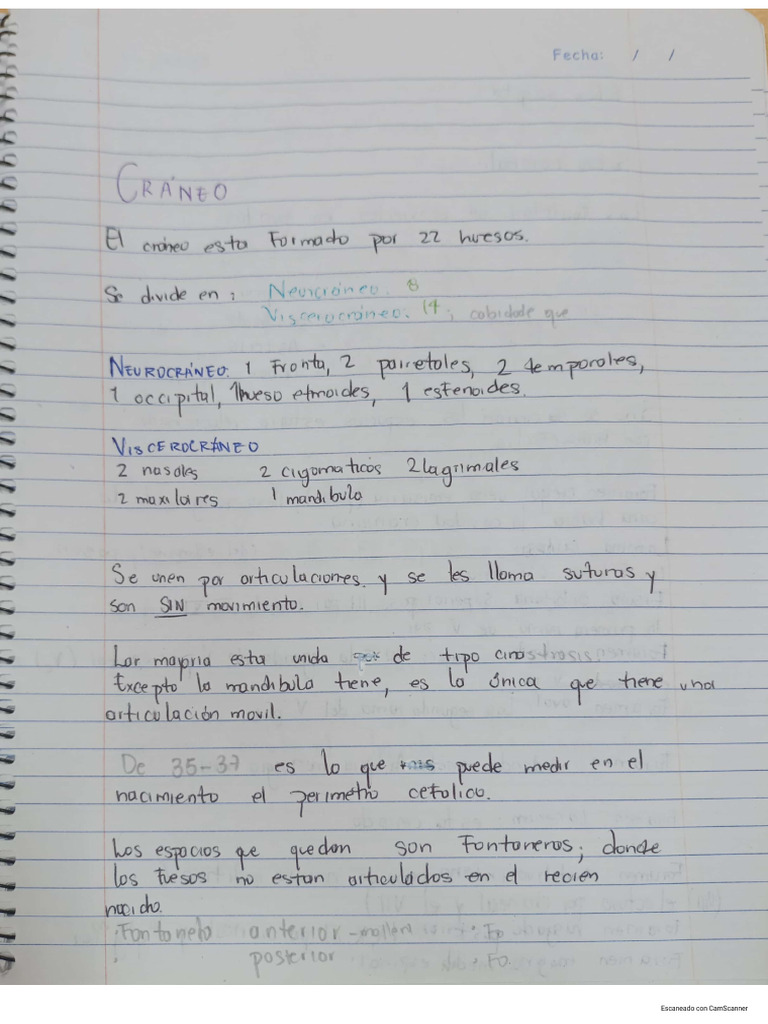 Fecha: / /
CRÁNEO
El cráneo esta Formado por 22 huesos.
Se divide en: Neurcráneo. 8
Viscerocráneo. 14; cobidade que
NEUROCRÁNEO: 1 Fronta, 2 pairetales, 2 temporales,
1 occipital, 1hueso etmoides, 1 esfenoides.
VISCEROCRÁNEO
2 nasales 2 cigomaticos 2 lagrimales
2 maxilares 1 mandibula
Se unen por articulaciones. y se les llama suturas y
son SIN movimiento.
Lar mayria esta unida de tipo
Excepto la mandibula tiene, es la única que tiene una
articulación movil.
De 35-37 es lo que puede medir en el
nacimiento el perimetro cefolico.
Los espacios que quedan son Fontaneros; donde
los fuesos no estan articulados en el recien
nacido.
Fontanela anterior - : Fp
posterior : FO.
Escaneado con CamScanner